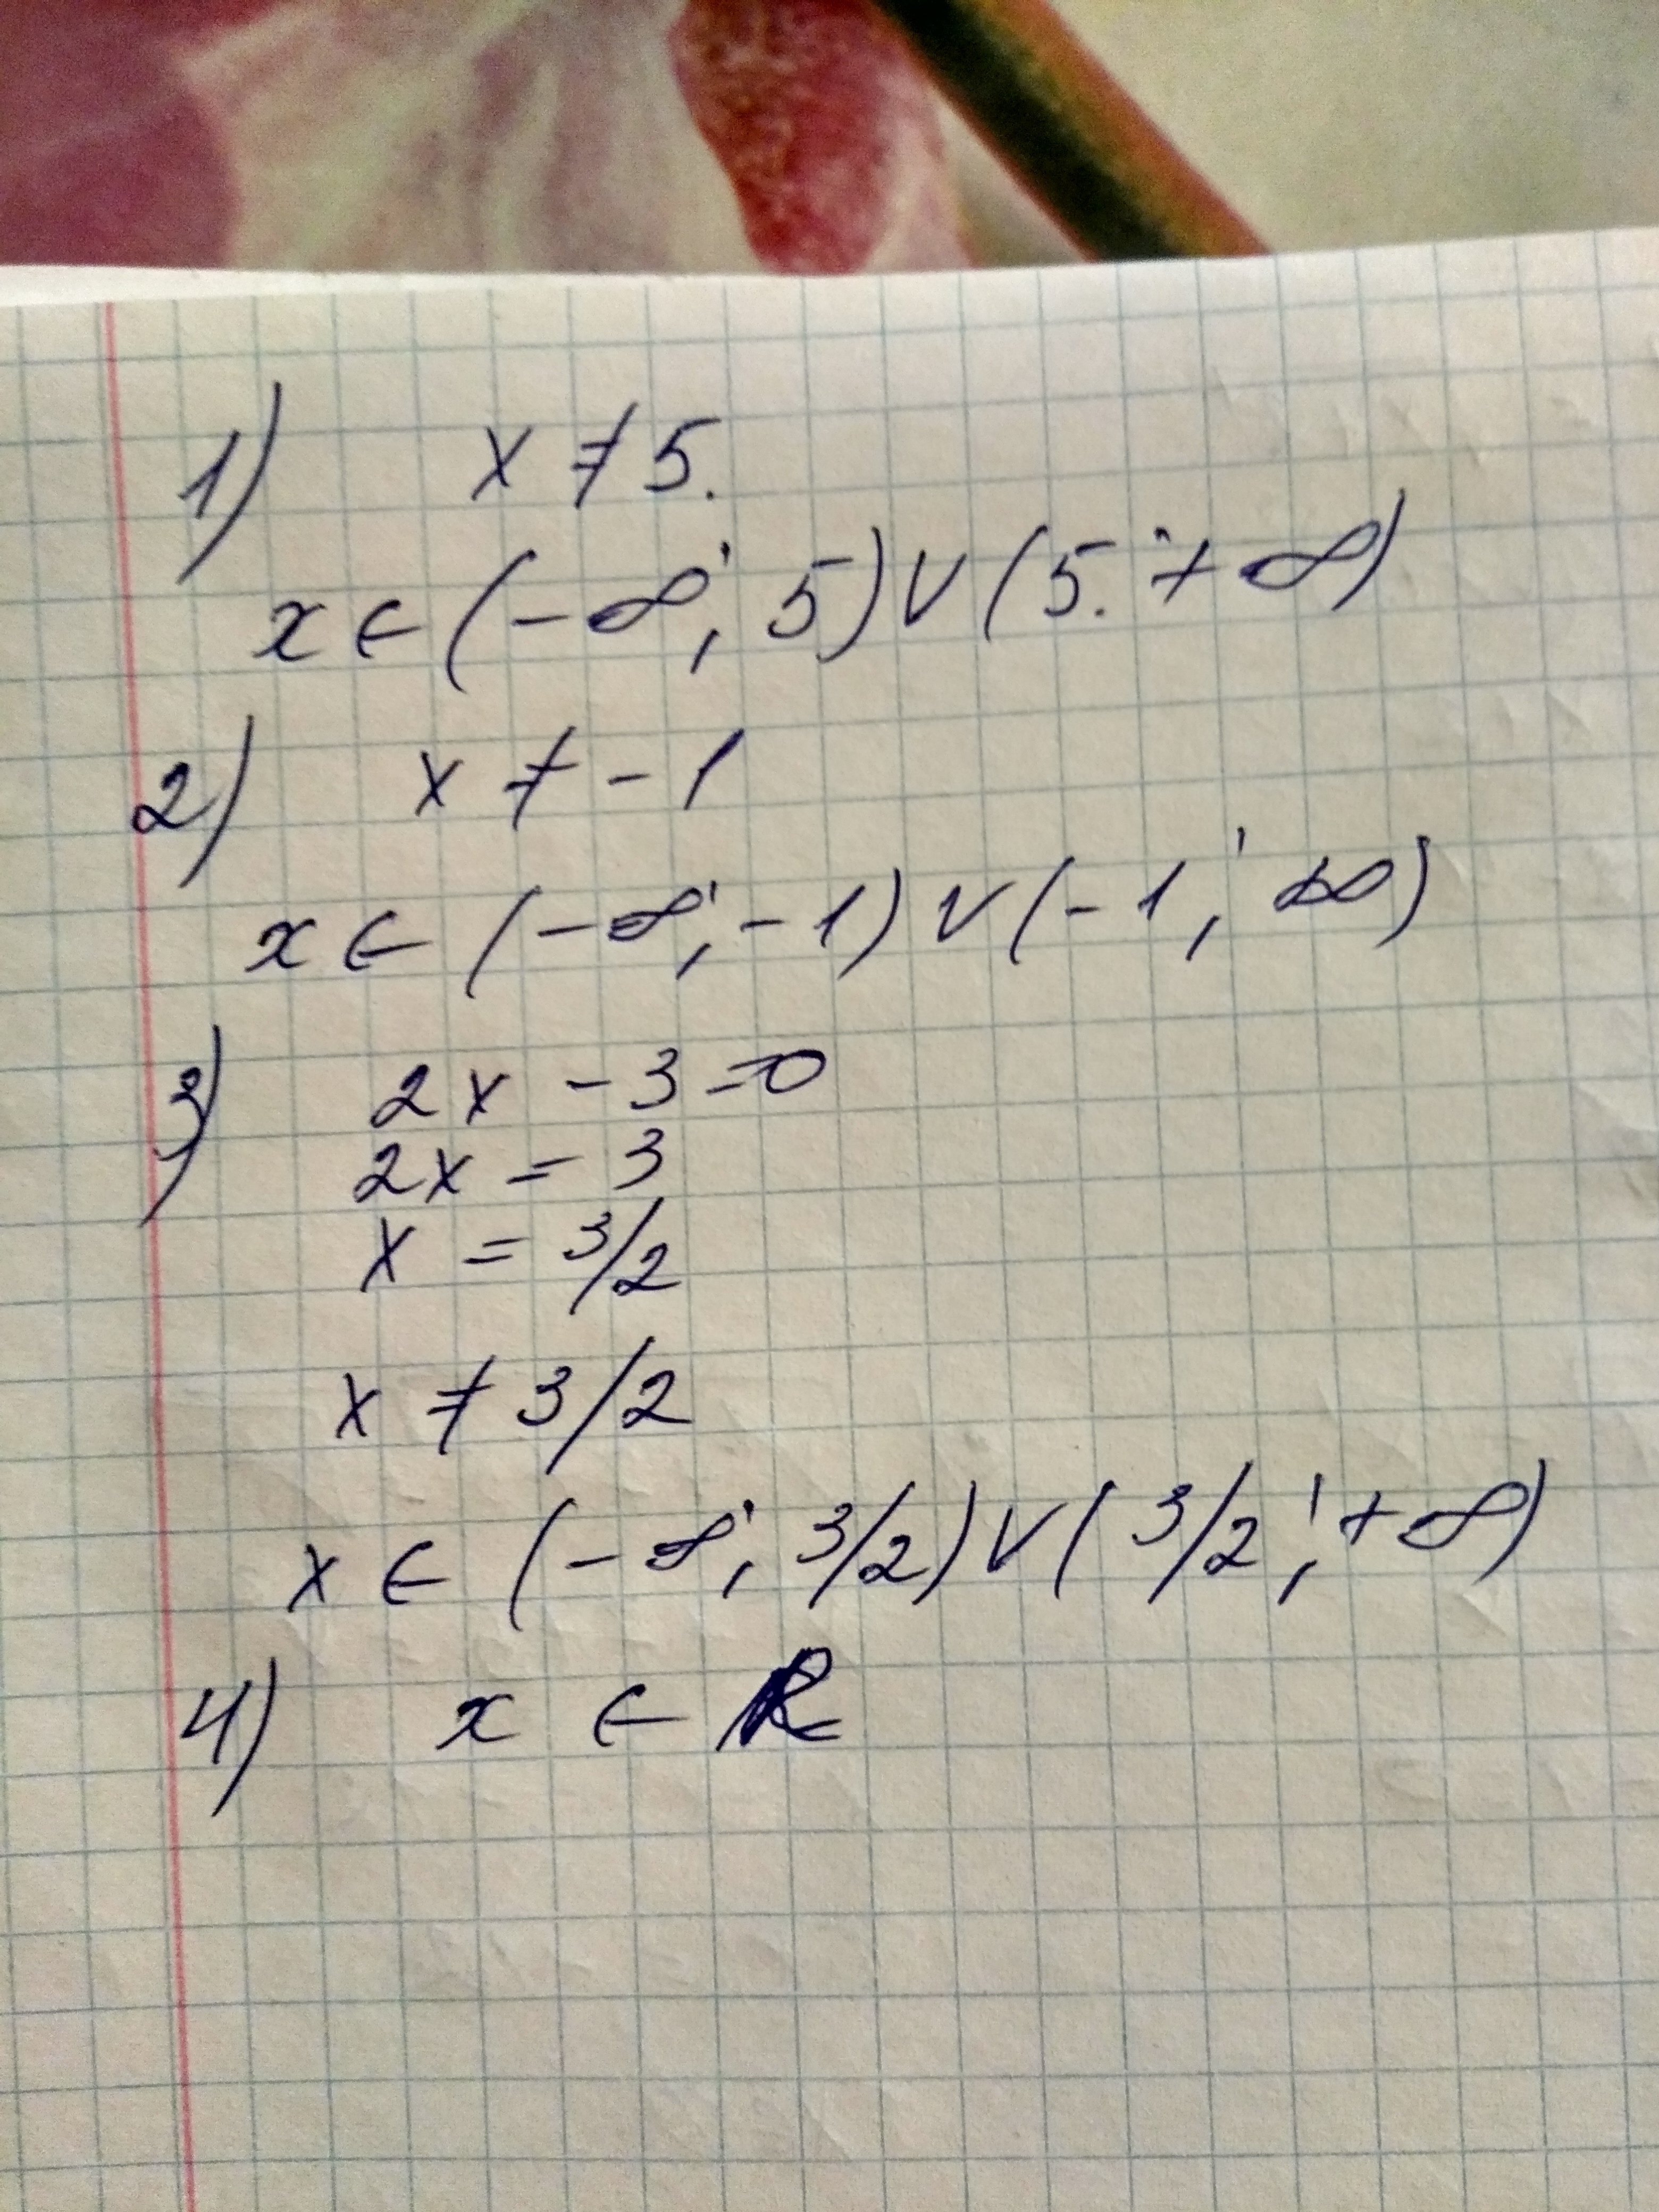 1) x ≠ 5.
x ∈ (-∞; 5) ∨ (5; +∞)
2) x ≠ -1
x ∈ (-∞; -1) ∨ (-1; +∞)
3) 2x - 3 = 0
2x = 3
x = 3/2
x ≠ 3/2
x ∈ (-∞; 3/2) ∨ (3/2; +∞)
4) x ∈ R